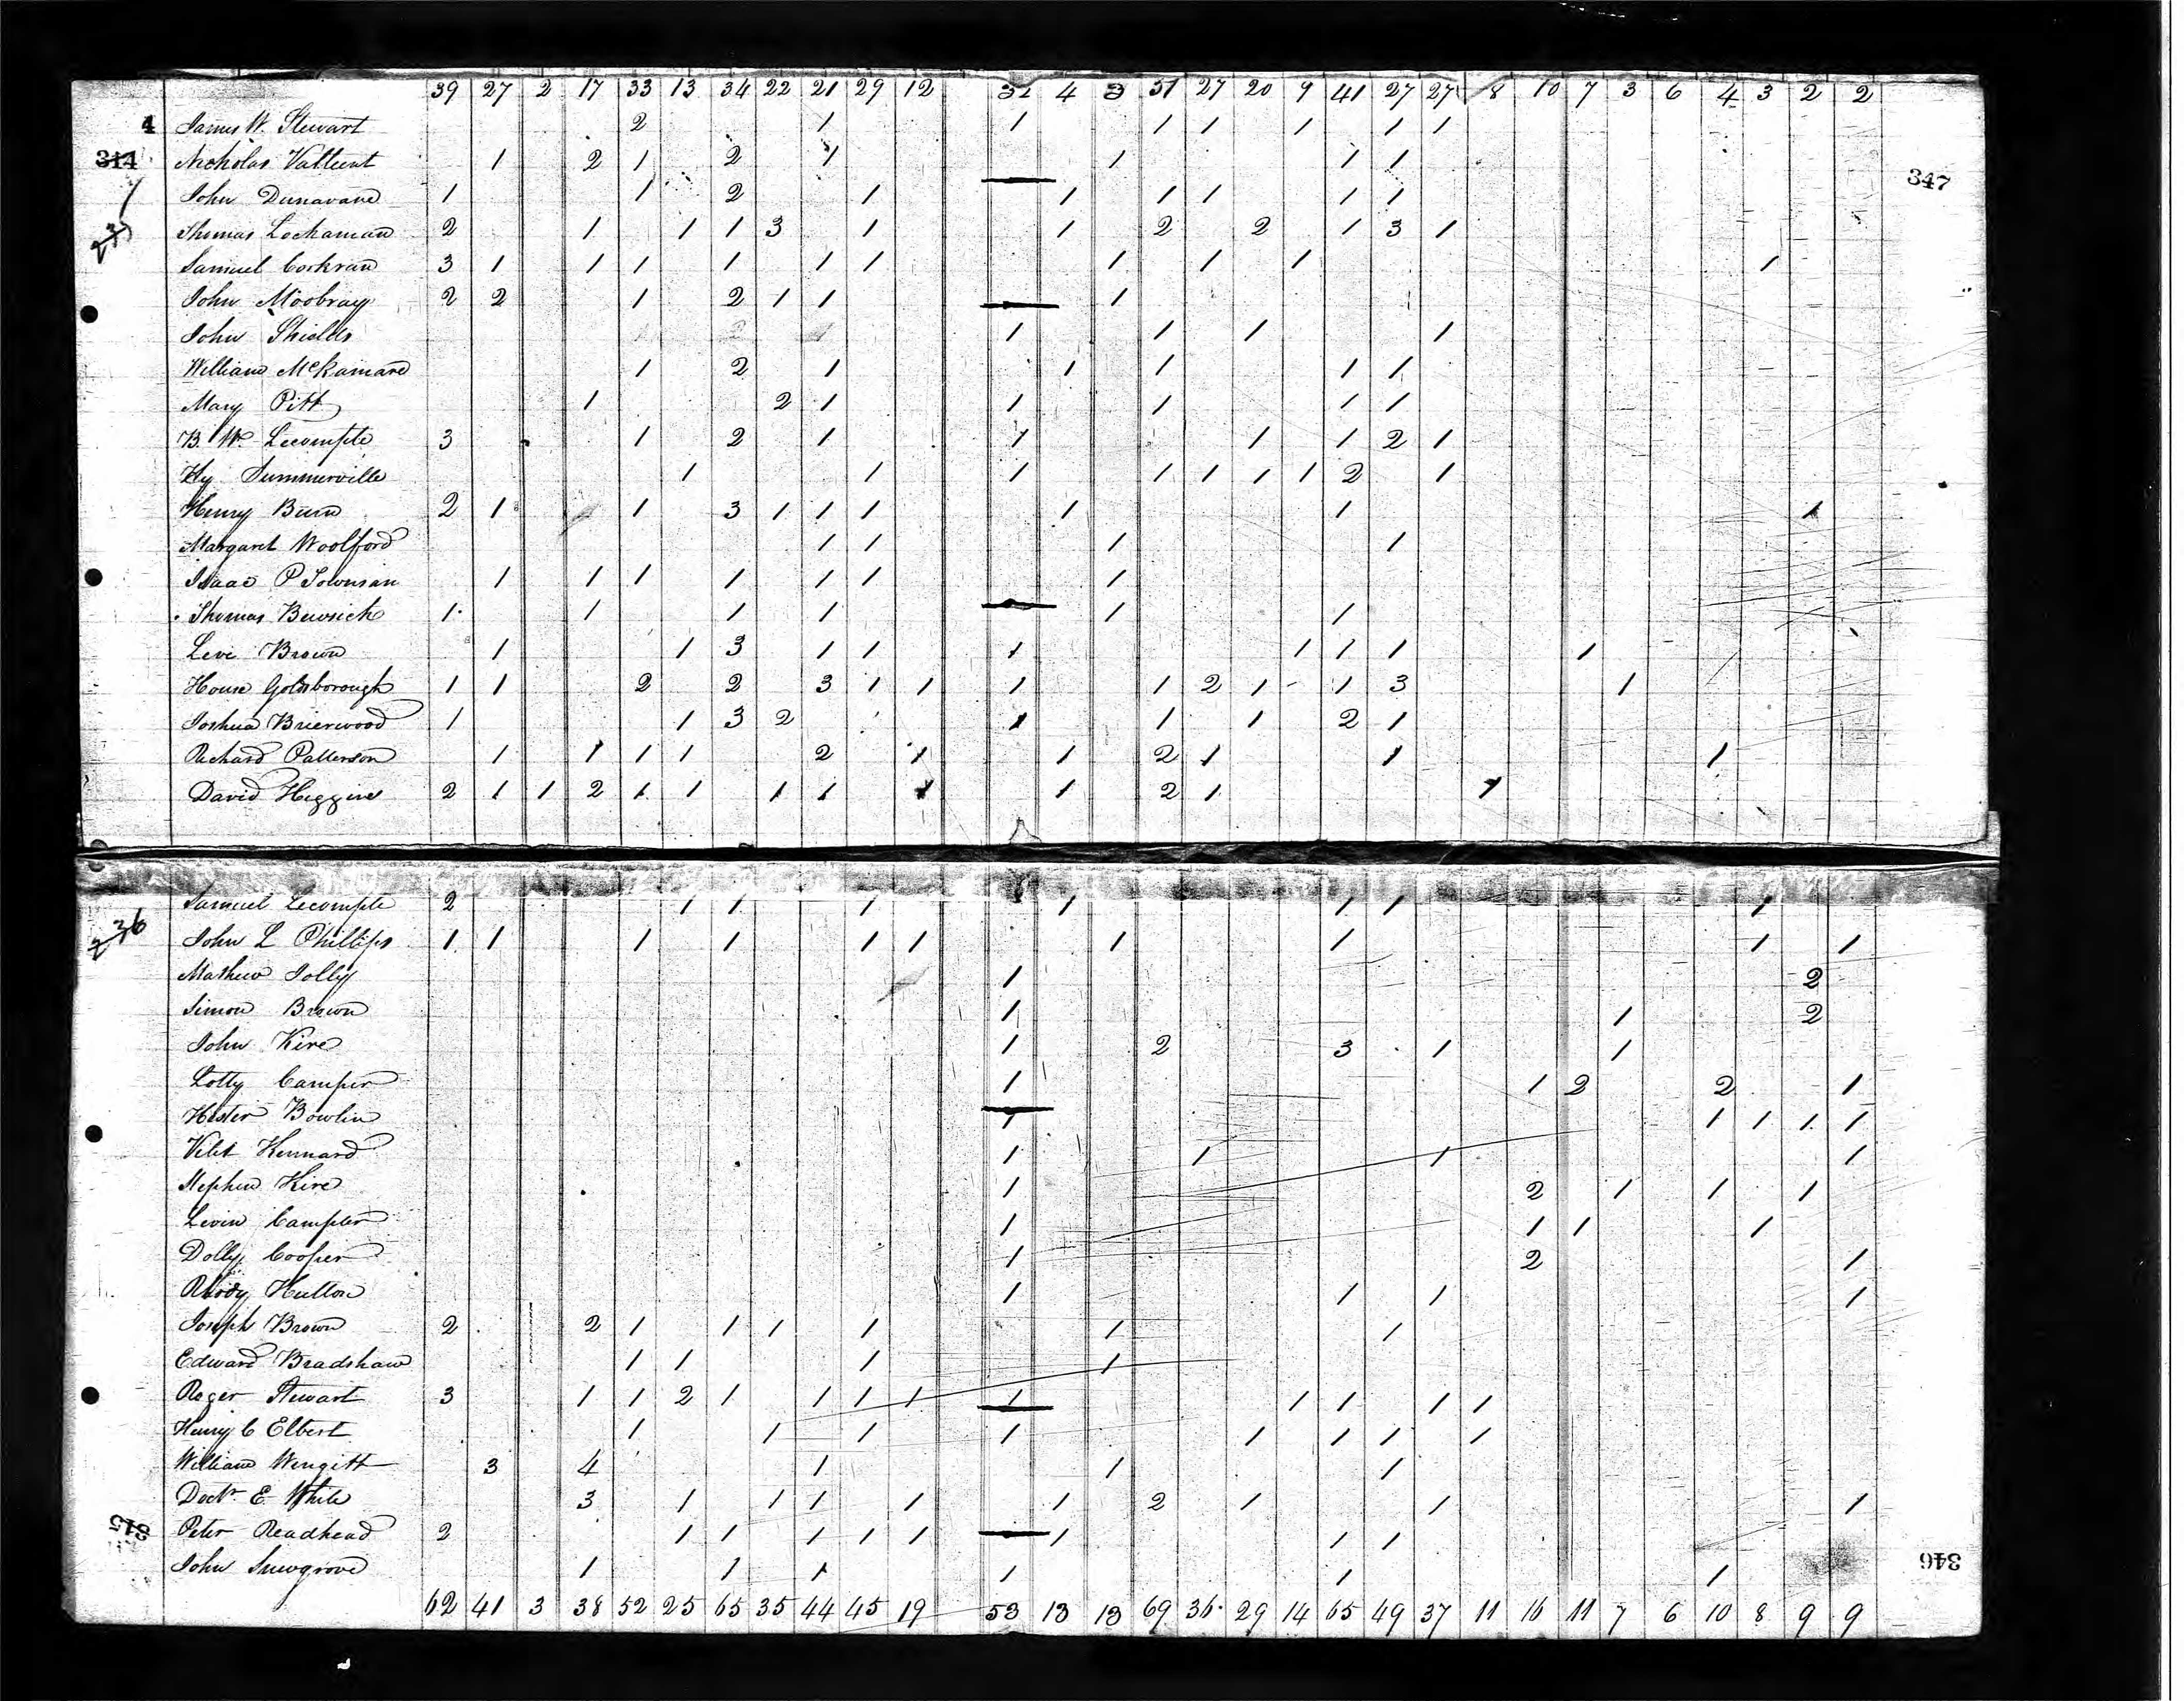 39 27 2 17 33 13 34 22 21 29 12 32 4 3 51 27 20 9 41 27 27 8 10 7 3 6 4 3 2 2
4 James W. Stewart 2 1 1 1 1 1 1 1
314 Nicholas 1 2 1 2 1 1 1 1
347
John Dunavane 1 1 2 1 1 1 1 1 1
Thomas Lockaman 2 1 1 1 3 1 1 2 2 1 3 1
Samuel Corkran 3 1 1 1 1 1 1 1 1 1 1
John Moobray 2 2 1 2 1 1 1
John Shields 1 1 1 1
William 1 2 1 1 1 1 1
Mary Pitt 1 2 1 1 1 1 1
B. W. Lecompte 3 1 2 1 1 1 1 2 1
Hy Summerville 1 1 1 1 1 1 1 2 1
Henry 2 1 1 3 1 1 1 1 1 1
Margaret Woolford 1 1 1 1
Isaac P 1 1 1 1 1 1 1
Thomas 1 1 1 1 1 1
Levi Brown 1 1 3 1 1 1 1 1 1 1
House Goldsborough 1 1 2 2 3 1 1 1 1 2 1 1 3 1
Joshua Brierwood 1 1 3 2 1 1 1 2 1
Richard Patterson 1 1 1 1 2 1 1 2 1 1 1
David Higgins 2 1 1 2 1 1 1 1 1 1 2 1 1
Samuel Lecompte 2 1 1 1 1 1 1 1
236 John L Phillips 1 1 1 1 1 1 1 1 1 1
Mathew Jolly 1 2
Simon Brown 1 1 2
John Kire 1 2 3 1 1
Lotty Camper 1 1 2 2 1
Hester Bowlin 1 1 1 1 1
Vilet Kennard 1 1 1 1
Stephen Kire 1 2 1 1 1
Levin Camper 1 1 1 1
Dolly Cooper 1 2 1
Rhody Hutton 1 1 1 1
Joseph Brown 2 2 1 1 1 1 1 1
Edward Bradshaw 1 1 1 1
Roger Stewart 3 1 1 2 1 1 1 1 1 1 1 1 1
Henry C Elbert 1 1 1 1 1 1 1 1
William 3 4 1 1 1
Doctr. E. White 3 1 1 1 1 1 2 1 1 1
315 Peter Readhead 2 1 1 1 1 1 1 1 1
John 1 1 1 1 1 1
346
62 41 3 38 52 25 65 35 44 45 19 53 13 13 69 36 29 14 65 49 37 11 16 11 7 6 10 8 9 9